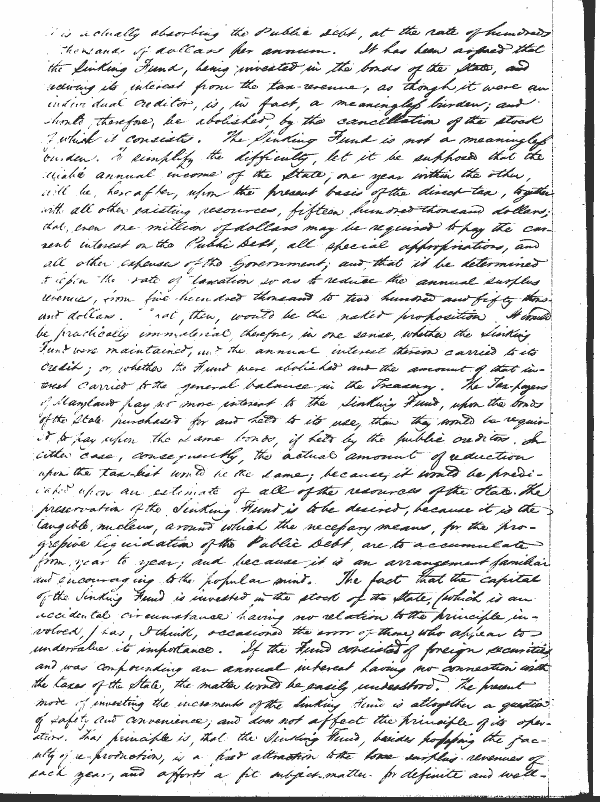 is actually absorbing the Public Debt, at the rate of hundreds
thousands of dollars per annum. It has been argued that
the Sinking Fund, being invested in the bonds of the State, and
its interest from the tax-revenue, as though it were an
individual creditor, is, in fact, a meaningless burden; and
should, therefore, be abolished by the cancellation of the stock
of which it consists. The Sinking Fund is not a meaningless
burden. To simplify the difficulty, let it be supposed that the
annual income of the State, one year within the other,
will be, hereafter, upon the present basis of the direct tax, together
with all other existing resources, fifteen hundred thousand dollars;
that, even one million of dollars may be required to pay the cur-
rent interest on the Public Debt, all special appropriations, and
all other expenses of the Government; and that it be determined
the rate of taxation so as to reduce the annual surplus
revenues, from five hundred thousand to two hundred and fifty thous-
and dollars. that, then, would be the naked proposition. It would
be practically immaterial, therefore, in one sense, whether the Sinking
Fund were maintained, and the annual interest thereon carried to its
credit; or, whether the Fund were abolished and the amount of that in-
terest carried to the general balance in the Treasury. The Tax-payers
of Maryland pay no more interest to the Sinking Fund, upon the bonds
of the State purchased for and held to its use, than they would be requir-
ed to pay upon the same bonds, if held by the public creditors. In
either case, consequently, the actual amount of reduction
upon the tax-list would be the same; because, it would be predi-
cated upon an estimate of all of the resources of the State. The
preservation of the Sinking Fund is to be desired, because it is the
tangible, nucleus, around which the necessary means, for the pro-
gressive liquidation of the Public Debt, are to accumulate
from year to year; and because it is an arrangement familiar
and encouraging to the popular mind. The fact that the capital
of the Sinking Fund is invested in the stock of the State, (which is an
accidental circumstance having no relation to the principle in-
volved,) has, I think, occasioned the error of those, who appear to
undervalue its importance. If the Fund consisted of foreign securities
and was compounding an annual interest having no connection with
the taxes of the State, the matter would be easily understood. The present
mode of investing the increments of the Sinking Fund is altogether a question
of safety and convenience; and does not affect the principle of its oper-
ation. This principle is, that the Sinking Fund, besides possessing the fac-
ulty of re-production, is a fixed attraction to the loose surplus-revenues of
each year, and affords a fit subject-matter for definite and well-